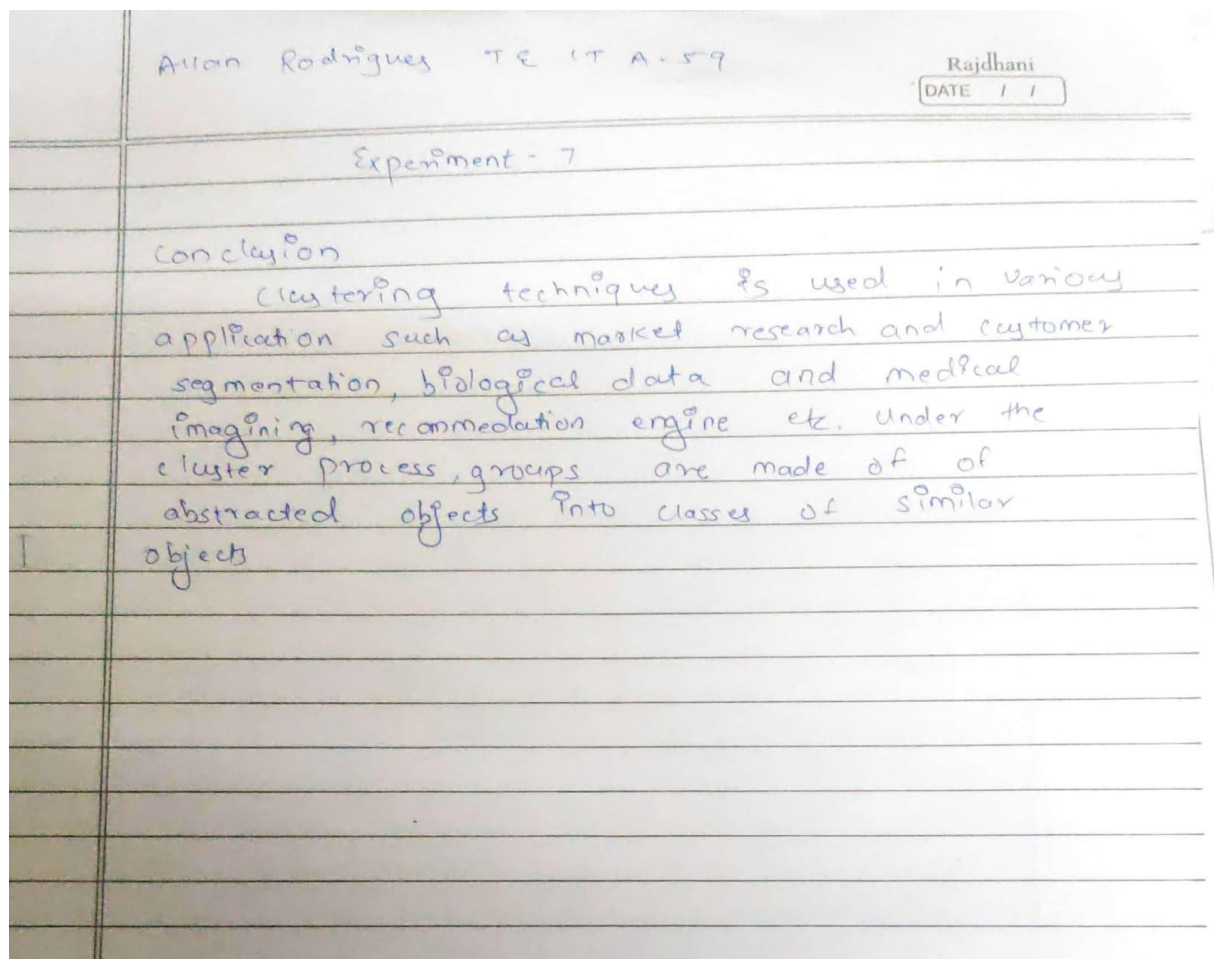 Allan Rodrigues TE IT A-59
Rajdhani
DATE / /
Experiment - 7
Conclusion
Clustering techniques is used in various
application such as market research and customer
segmentation, biological data and medical
imagining, recommedation engine etc. Under the
cluster process, groups are made of of
abstracted objects into classes of similar
objects